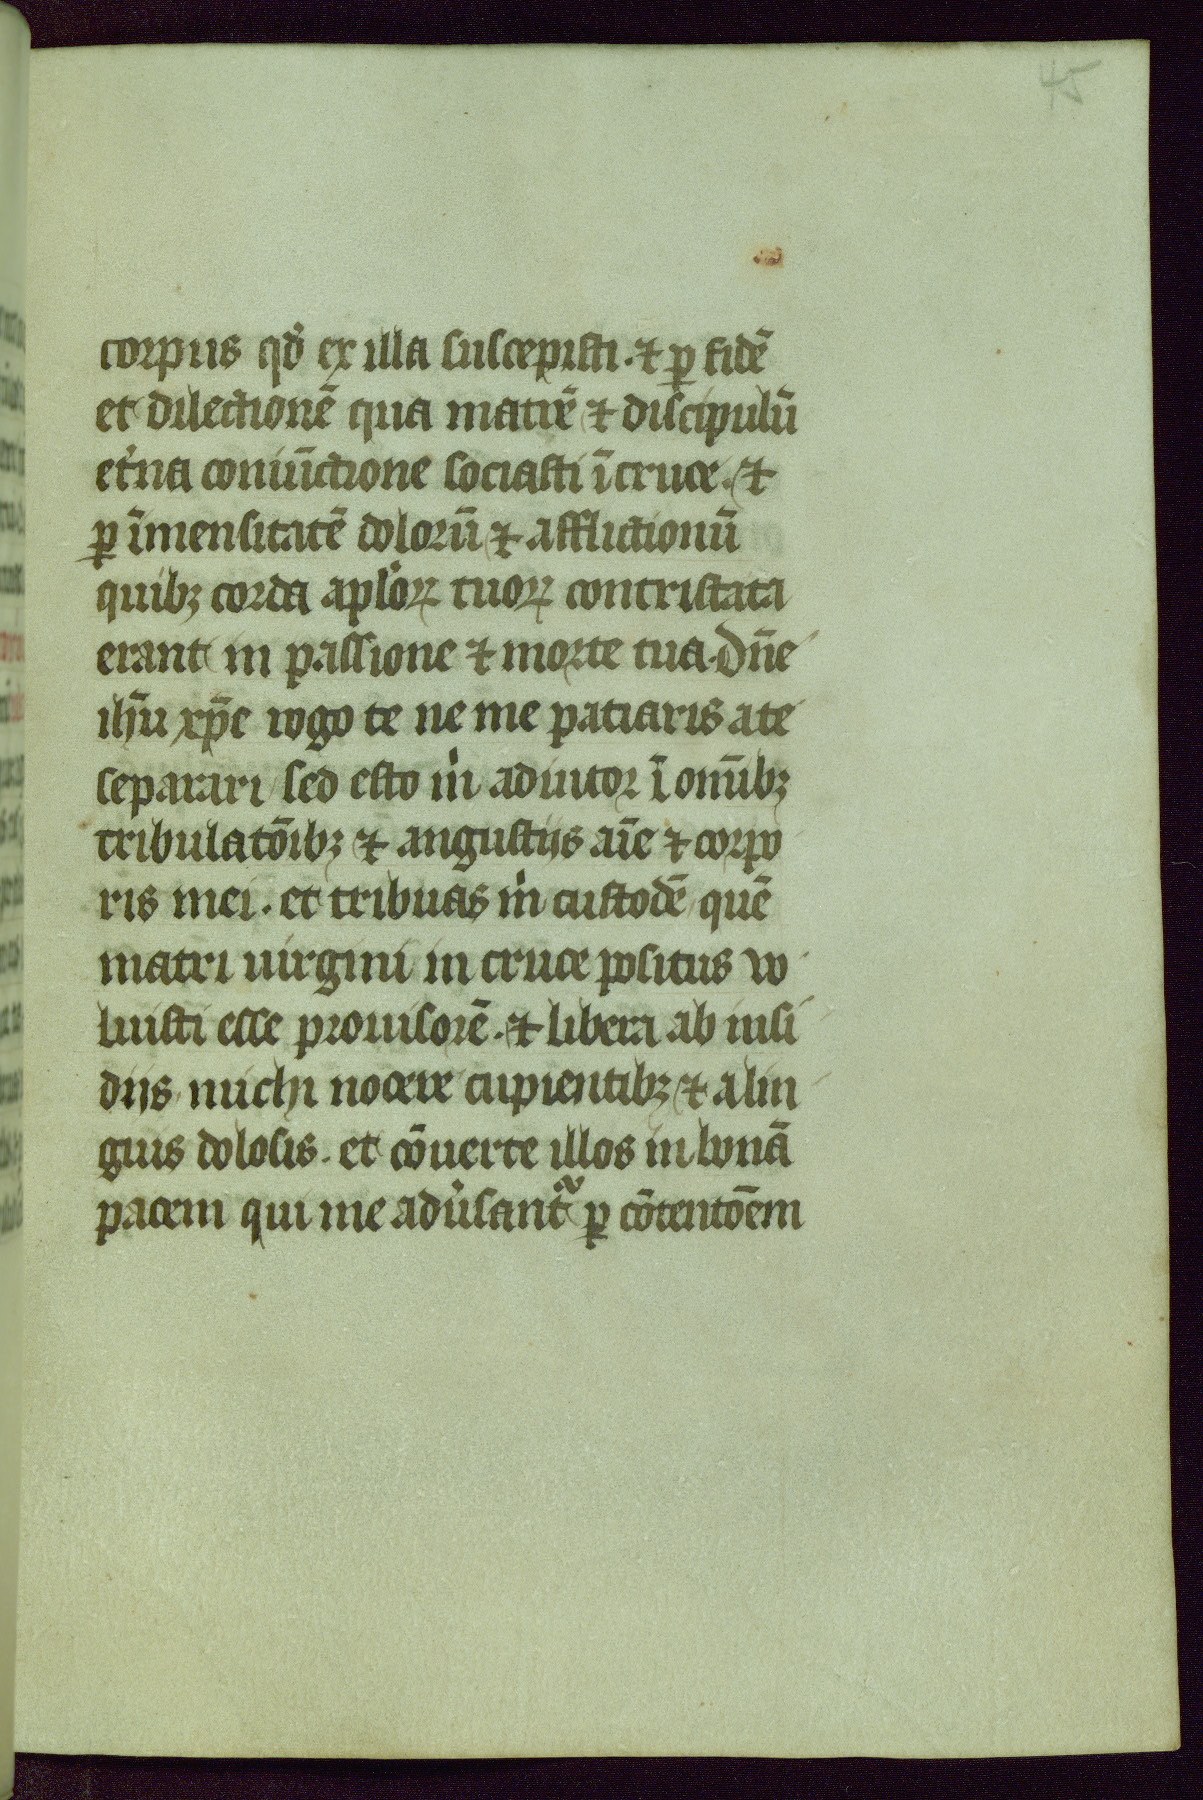 45
corpus qđ ex illa suscepisti. ⁊ ꝑ fidē
et dilectionē qua matrē ⁊ discipulū
et̉na coniūctione sociasti ī cruce. ⁊
ꝑ īmensitatē dolorū ⁊ afflictionū
quibꝫ corda aplo̓ꝝ tuoꝝ contristata
erant in passione ⁊ morte tua. Dn̄e
ih̄u xp̄e rogo te ne me patiaris a te
separari sed esto m̓ adiutor ī om̄ibꝫ
tribulatōibꝫ ⁊ angustijs aīe ⁊ corpo
ris mei. et tribuas m̓ custodē quē
matri uirgini in cruce positus vo
luisti esse prouisorē. ⁊ libera ab insi
dijs michi nocere cupientibꝫ ⁊ a lin
guis dolosis. et cōuerte illos in bonā
pacem qui me adu̓sant᷑ ꝑ cōtentōem